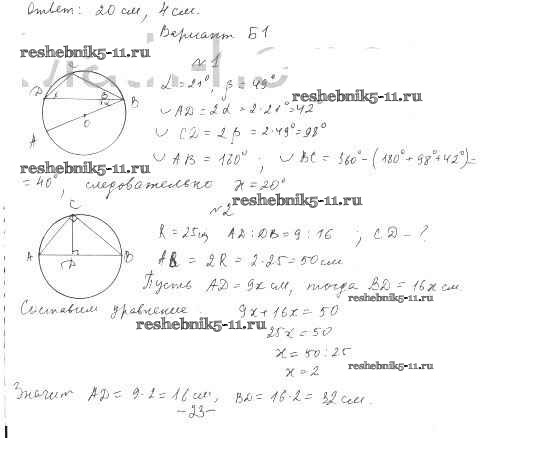 Ответ: 20 см, 4 см.
Вариант Б1
reshebnik5-11.ru
№1
α = 21°, β = 49°
reshebnik5-11.ru
∪ AD = 2α = 2·21° = 42°
∪ CD = 2β = 2·49° = 98°
reshebnik5-11.ru
∪ AB = 180° ; ∪ BC = 360° - (180° + 98° + 42°) =
= 40°, следовательно x = 20°
reshebnik5-11.ru
№2
R = 25 см AD : DB = 9 : 16 ; CD - ?
AB = 2R = 2·25 = 50 см
Пусть AD = 9x см, тогда BD = 16x см
reshebnik5-11.ru
Составим уравнение 9x + 16x = 50
reshebnik5-11.ru
25x = 50
x = 50 : 25
x = 2
reshebnik5-11.ru
Значит AD = 9·2 = 16 см, BD = 16·2 = 32 см.
-23-
C
D
x
β
α
B
A
O
C
A
D
B